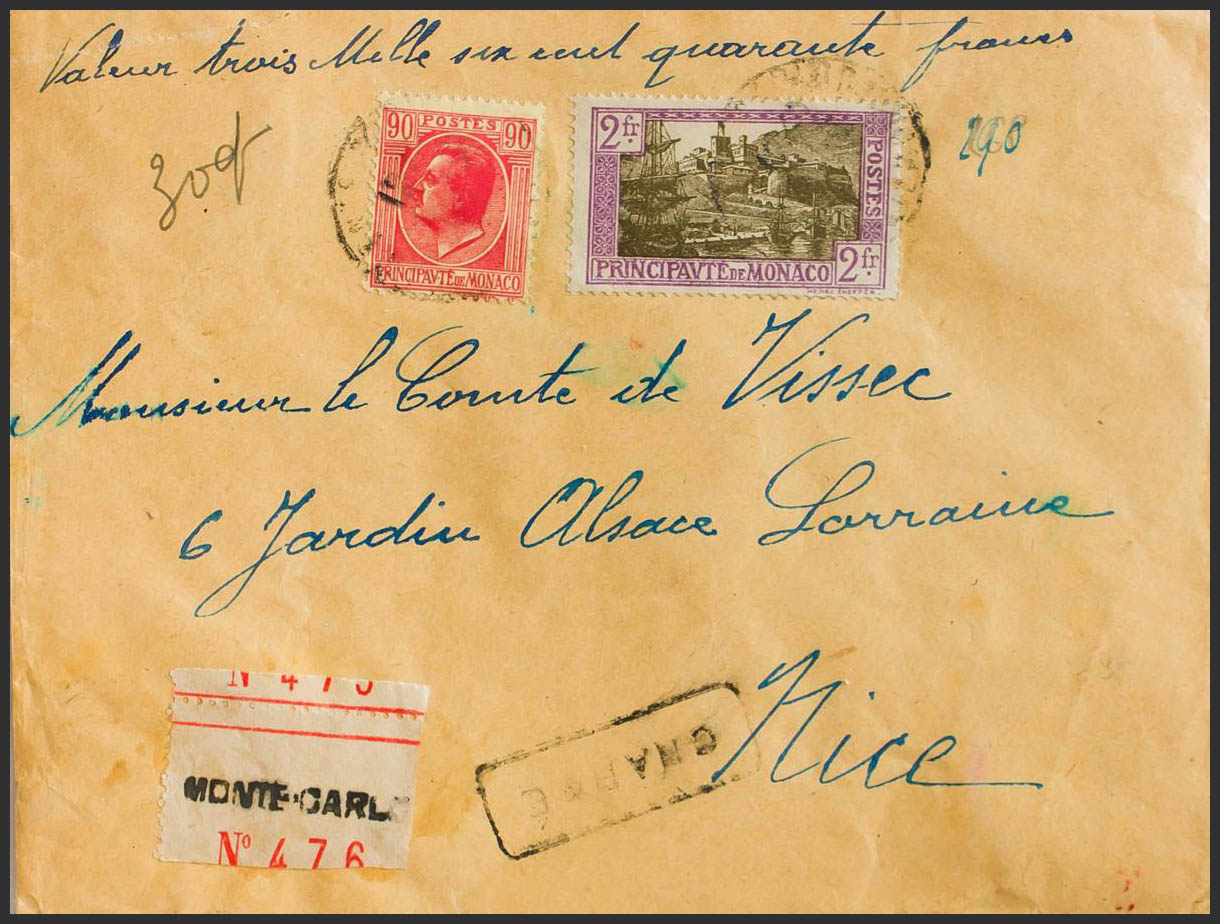 Valeur trois Mille six cent quarante francs
30 gr
190
90 POSTES 90
PRINCIPAVTÉ DE MONACO
2 fr.
POSTES
PRINCIPAVTÉ DE MONACO 2 fr.
HENRI CHEFFER
Monsieur le Comte de Vissec
6 Jardin Alsace Lorraine
Nice
CHARGÉ
N° 475
MONTE-CARLO
N° 476